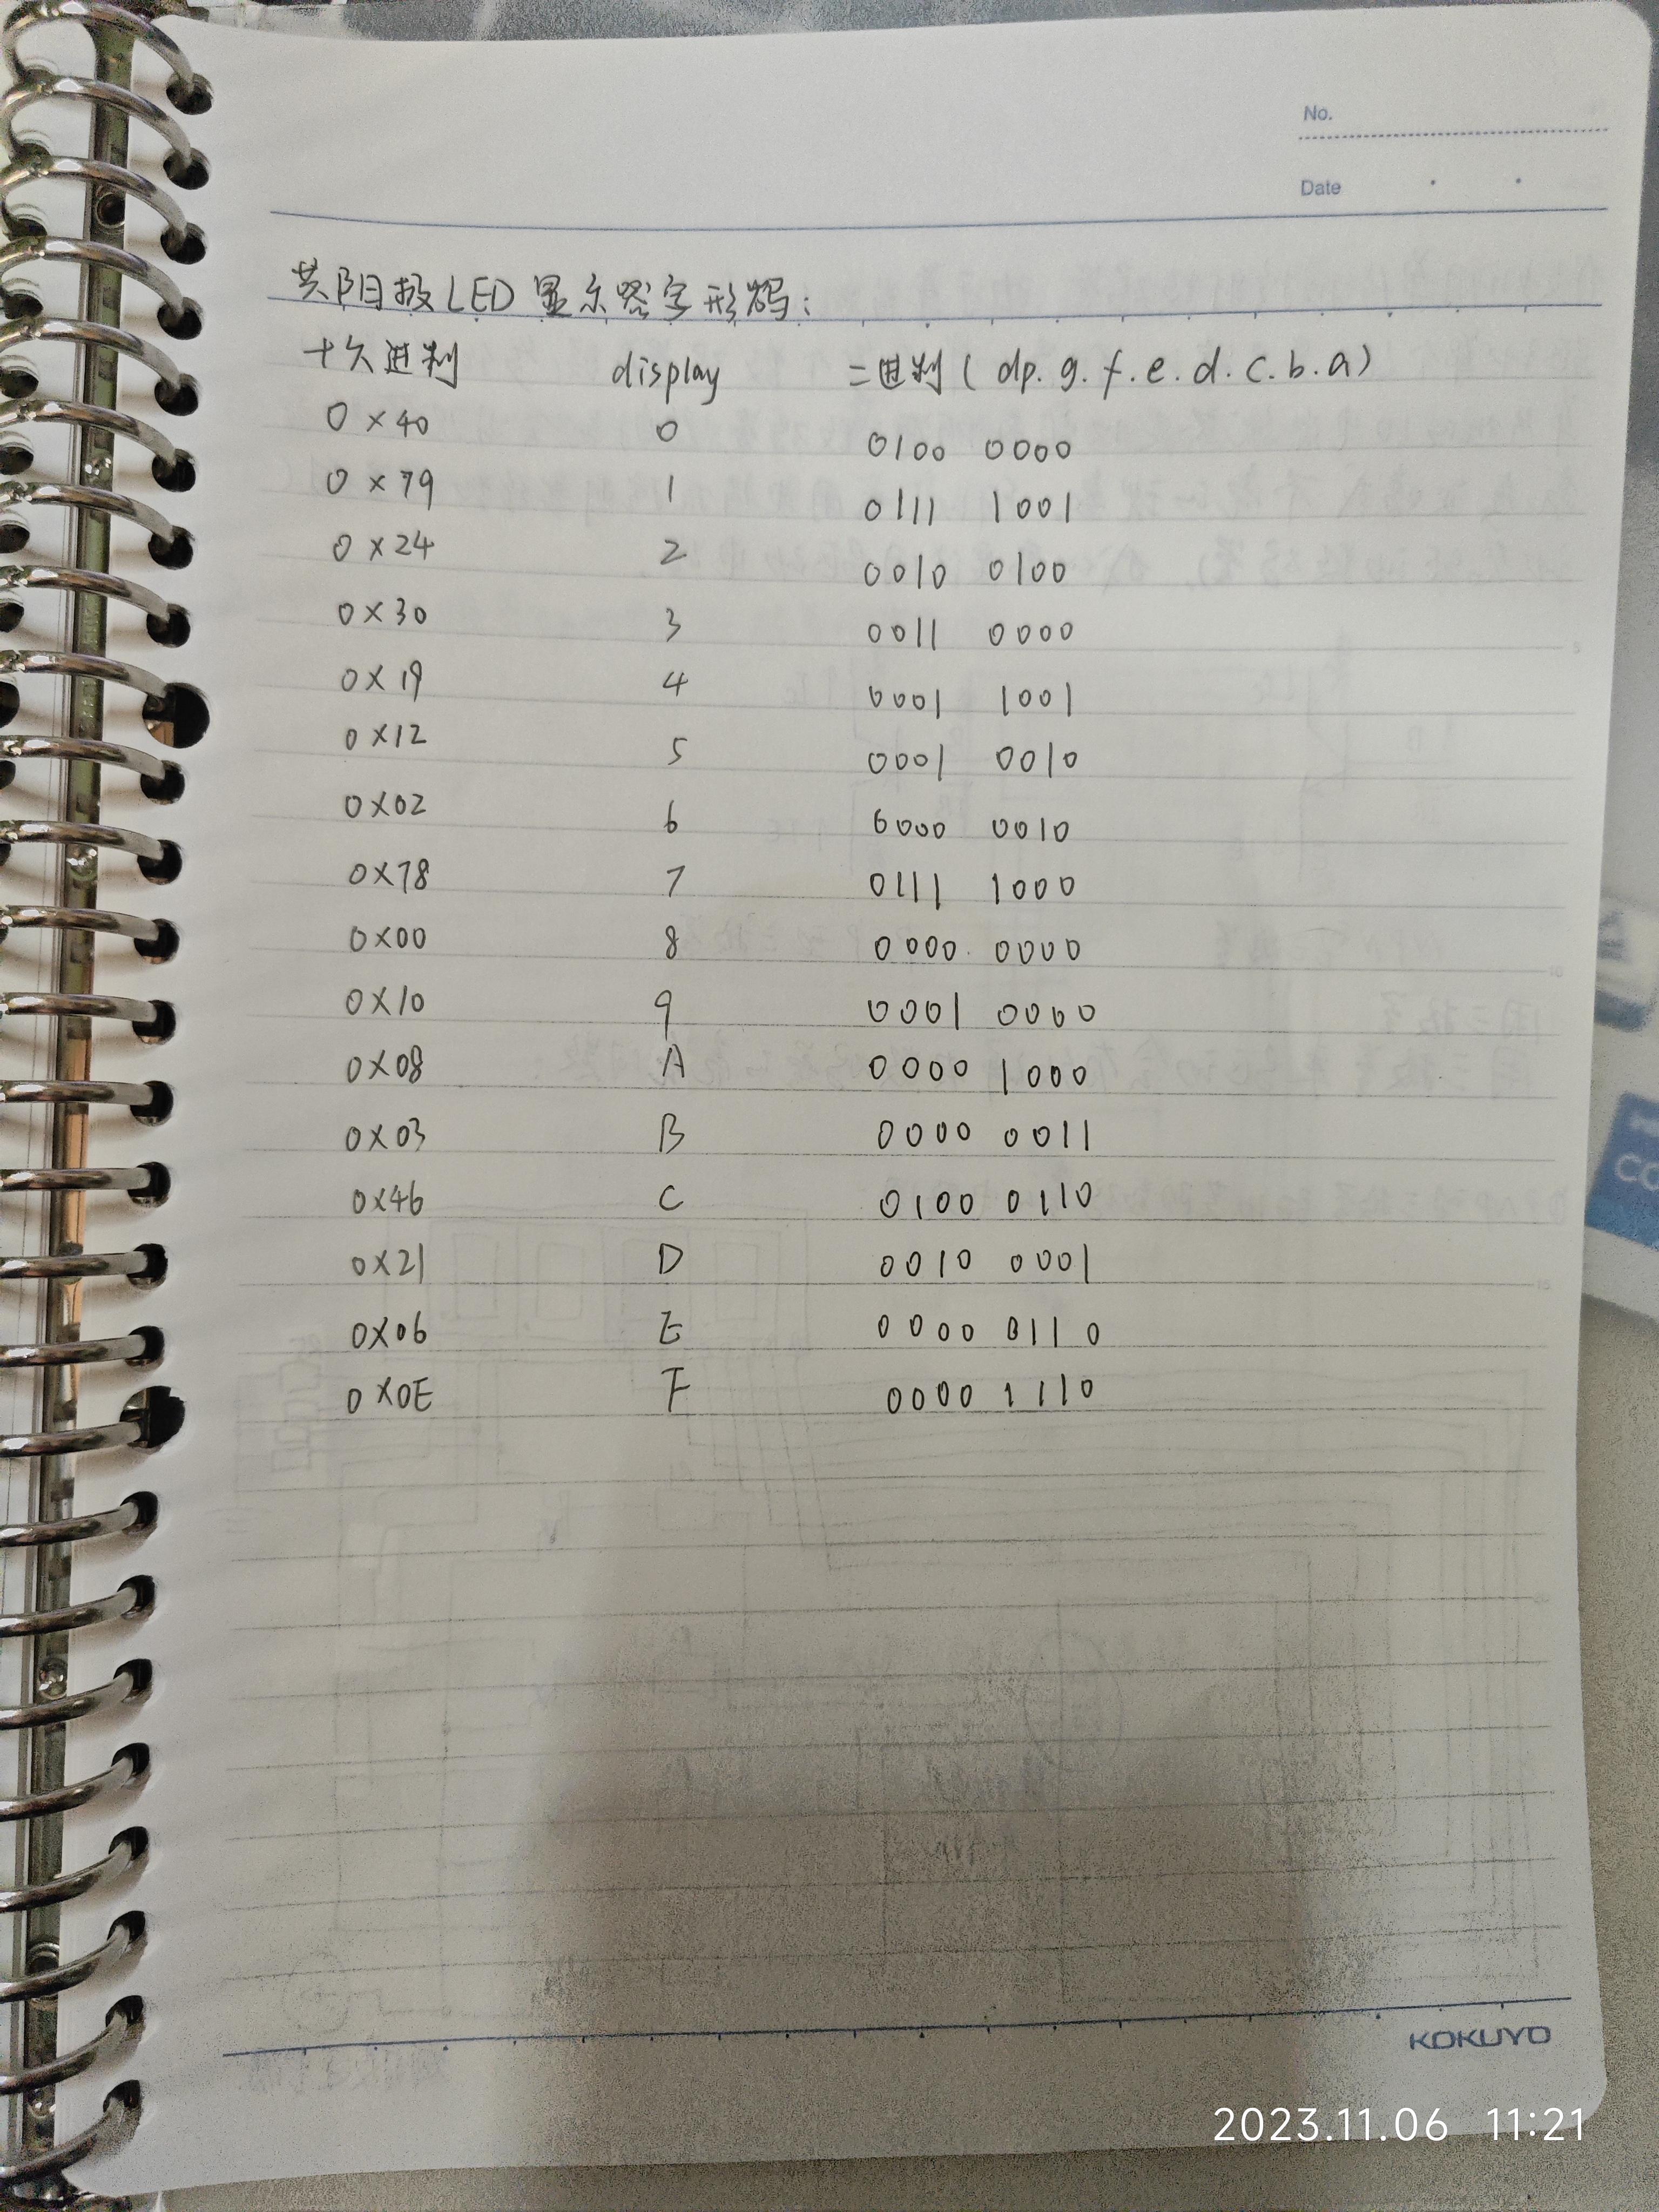 No.
Date
共阳极LED显示器字形码:
十六进制 display 二进制( dp. g. f. e. d. c. b. a)
0×40 0 0100 0000
0×79 1 0111 1001
0×24 2 0010 0100
0×30 3 0011 0000
0×19 4 0001 1001
0×12 5 0001 0010
0×02 6 0000 0010
0×78 7 0111 1000
0×00 8 0000 0000
0×10 9 0001 0000
0×08 A 0000 1000
0×03 B 0000 0011
0×46 C 0100 0110
0×21 D 0010 0001
0×06 E 0000 0110
0×0E F 0000 1110
KOKUYO
2023.11.06 11:21